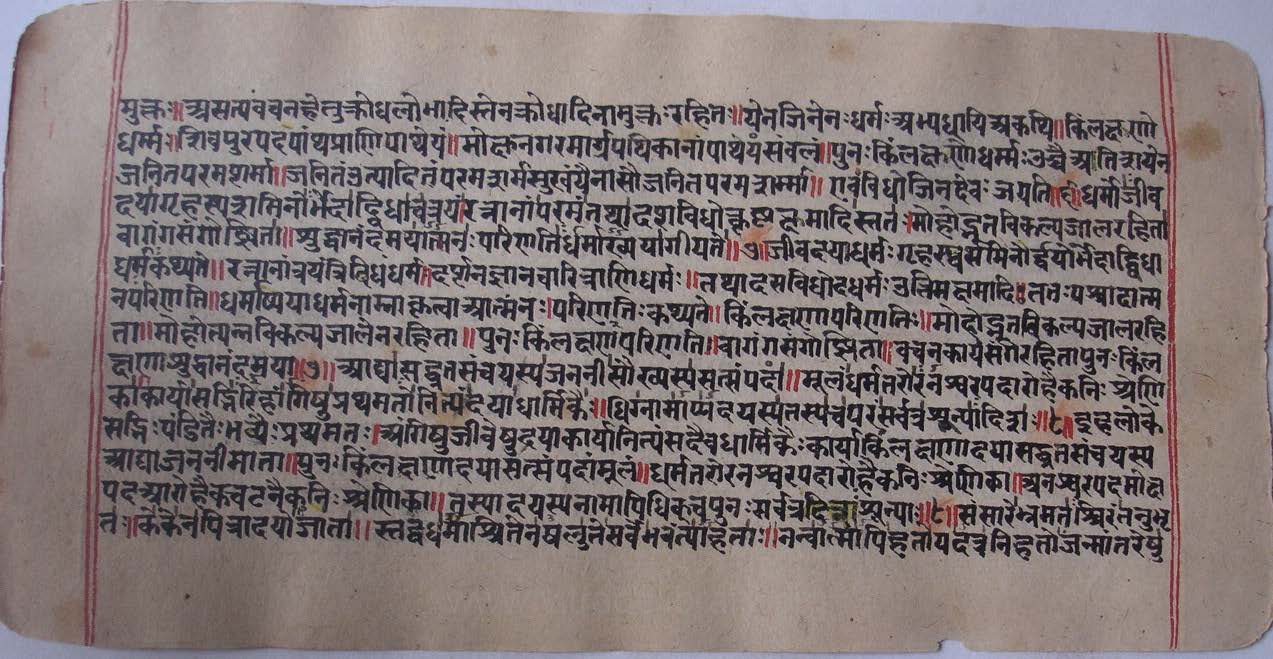 मुक्तः॥असत्यवचनहेतुक्रोधलोभादिस्तेनक्रोधादिनामुक्तःरहितः॥येनजिनेनःधर्मःअभ्यधायिअकथि॥किंलक्षणो
धर्म्मः।शिवपुरपदपांथप्राणिपाथेयं॥मोक्षनगरमार्गपथिकानांपाथेयंसंबलं॥पुनःकिंलक्षणोधर्म्मःउच्चैःअतिशयेन
जनितपरमशर्मा॥जनितंउत्पादितंपरमशर्मसुखंयेनासौजनितपरमशर्म्मा॥एवंविधोजिनदेवःजयति॥ धर्मोजीव
दयागृहस्थशमिनोर्भेदाद्द्विधाचत्रयंरत्नानांपरमंतथादशविधोत्कृष्टक्षमादिस्ततः।मोहोद्भूतविकल्पजालरहिता
वागंगसंगोज्झिता॥शुद्धानंदमयात्मनःपरिणतिर्धर्माख्ययागीयते॥७॥जीवदयाधर्मःगृहस्थशमिनोर्द्वयोर्भेदाद्द्विधा
धर्मःकथ्यते॥रत्नानांत्रयंत्रिविधंधर्मं।दर्शनज्ञानचारित्राणिधर्मः॥तथादसविधोदधर्मःउत्तिमक्षमादिःततःपश्चादात्म
नःपरिणति॥धर्माष्पयाधर्मनाम्नाकृत्वाआत्मनः।परिणतिःकथ्यते॥किंलक्षणापरिणतिः॥मोहोद्भूतविकल्पजालरहि
ता॥मोहोत्पन्नविकल्पजालेनरहिता॥पुनःकिंलक्षणापरिणति॥वागंगसंगोज्झिता॥वचनकायसंगेरहितापुनःकिंल
क्षणाशुद्धानंदमया॥७॥आद्यासद्व्रतसंचयस्यजननीसौख्यस्यसत्संपदां॥मूलंधर्मतरोरनश्वरपदारोहैकनिःश्रेणि
काकार्यासद्भिरिहांगिषुप्रथमतोनित्यंदयाधार्मिकैः॥धिग्नामाप्यदयस्यतस्यचपरंसर्वत्रशून्यादिशः॥८॥इहलोके
सद्भिःपंडितैःभव्यैःप्रथमतः।अंगिषुजीवेषुदयाकार्यानित्यंसदैवधार्मिकैःकार्याकिंलक्षणादयासद्व्रतसंचयस्य
आद्याजननीमाता॥पुनःकिंलक्षणादयासत्संपदांमूलं॥धर्मतरोरनश्वरपदारोहैकनिःश्रेणिका॥अनश्वरपदमोक्ष
पदआरोहैकचटनैकनिःश्रेणिका॥तस्यादयस्यनामापिधिक्चपुनःसर्वत्रदिशाशून्या॥८॥संसारेभ्रमतश्चिरंतनुभृ
तःकेकेनपित्रादयोजाता॥स्तद्वधमाश्रितेनषलुतेसर्वेभवंत्याहताः॥नन्वात्मापिहतोयदत्रनिहतोजन्मांतरेषु